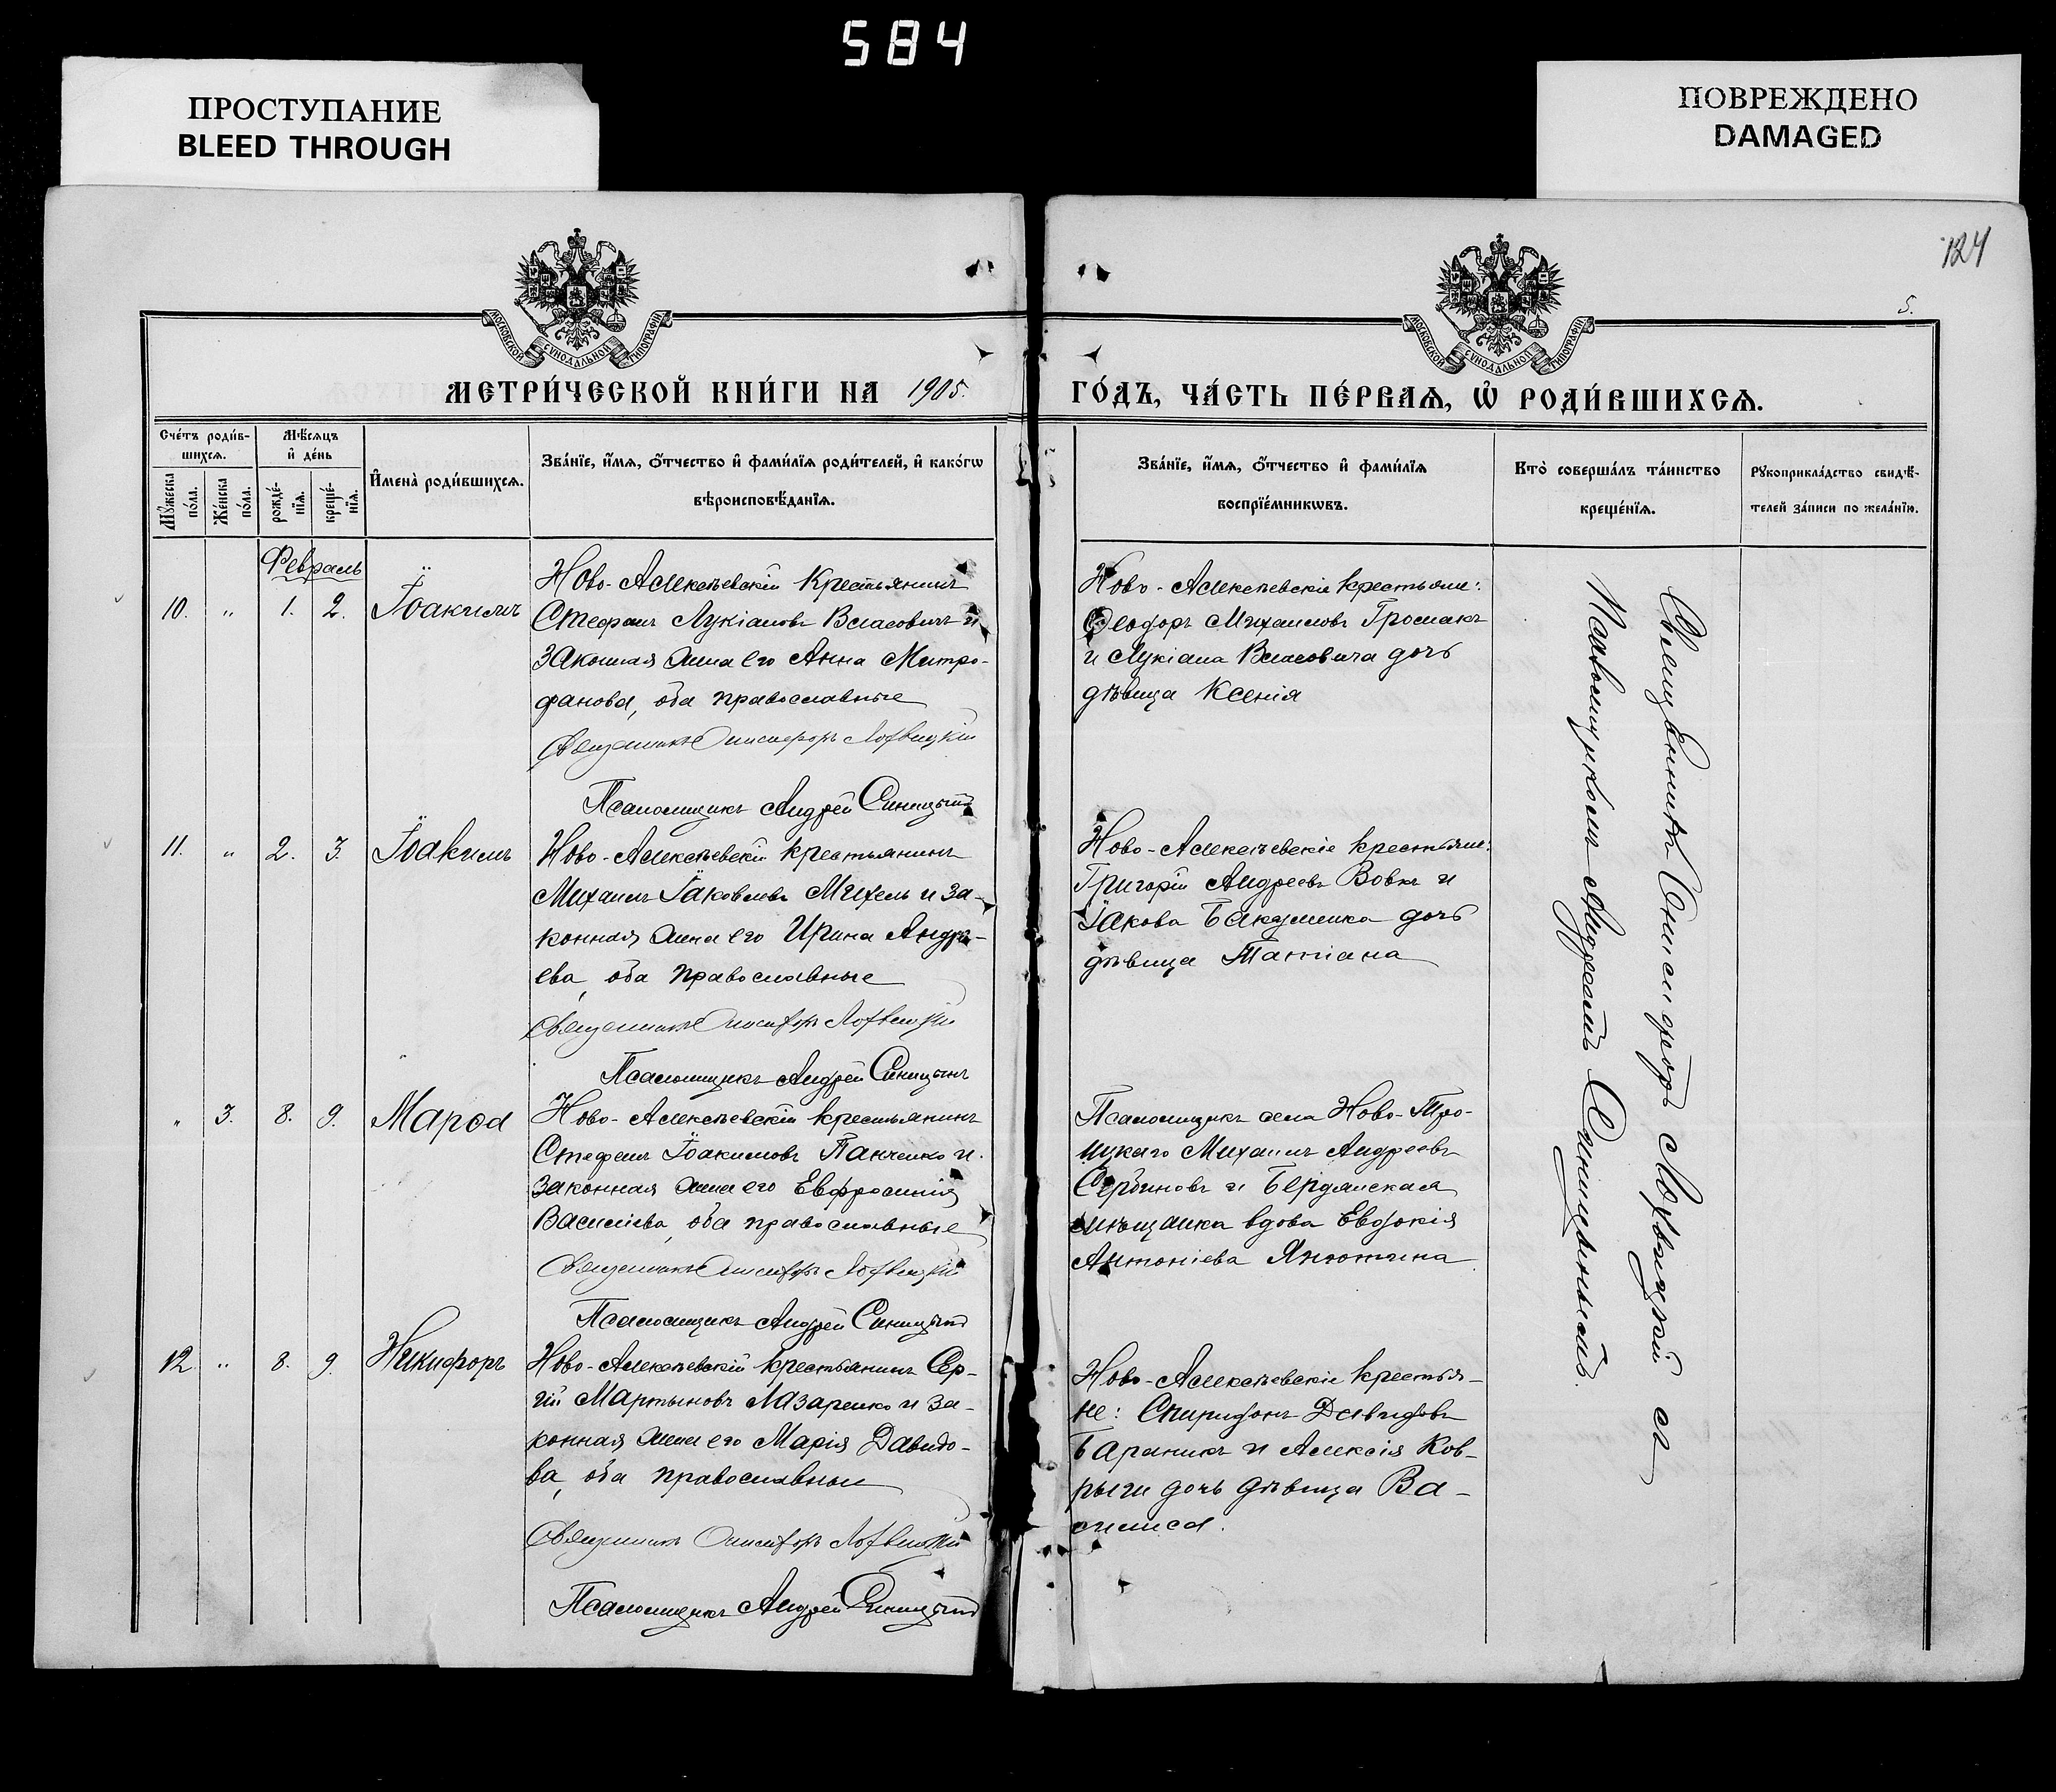 584
ПРОСТУПАНИЕ
BLEED THROUGH
ПОВРЕЖДЕНО
DAMAGED
124
5.
МОСКОВСКОЙ СѴНОДАЛЬНОЙ ТИПОГРАФІИ
МОСКОВСКОЙ СѴНОДАЛЬНОЙ ТИПОГРАФІИ
МЕТРИ́ЧЕСКОЙ КНИ́ГИ НА 1905.
ГО́ДЪ, ЧА́СТЬ ПЕ́РВАѦ, Ѡ҆ РОДИ́ВШИХСѦ.
Сче́тъ роди́в-
шихсѧ.
Мꙋ́жеска по́ла.
Же́нска по́ла.
Мѣ́сѧцъ
и҆ де́нь
рожде́-
нїѧ.
креще́-
нїѧ.
И҆мена̀ роди́вшихсѧ.
Зва́нїе, и҆́мѧ, ѻ҆́тчество и҆ фами́лїѧ роди́телей, и҆ како́гѡ
вѣроисповѣ́данїѧ.
Зва́нїе, и҆́мѧ, ѻ҆́тчество и҆ фами́лїѧ
воспрїе́мникѡвъ.
Кто̀ соверша́лъ та́инство
креще́нїѧ.
Рꙋкоприкла́дство свидѣ́-
телей за́писи по жела́нїю.
Февраль
10. „ 1. 2. Іоакимъ
Ново-Алексѣевскій крестьянинъ
Стефанъ Лукіановъ Власовичъ и
законная жена его Анна Митро-
фанова, оба православные
Священникъ Онисифоръ Логвицкій
Псаломщикъ Андрей Синицынъ
Ново-Алексѣевскіе крестьяне:
Ѳеодоръ Михаиловъ Громакъ
и Лукіана Власовича дочь
дѣвица Ксенія
11. „ 2. 3. Іоакимъ
Ново-Алексѣевскій крестьянинъ
Михаилъ Іаковлевъ Михель и за-
конная жена его Ирина Андре-
ева, оба православные
Священникъ Онисифоръ Логвицкій
Псаломщикъ Андрей Синицынъ
Ново-Алексѣевскіе крестьяне:
Григорій Андреевъ Вовкъ и
Іакова Бакуменка дочь
дѣвица Татіана
„ 3. 8. 9. Марѳа
Ново-Алексѣевскій крестьянинъ
Стефанъ Іоакимовъ Панченко и
законная жена его Евфросинія
Василіева, оба православные
Священникъ Онисифоръ Логвицкій
Псаломщикъ Андрей Синицынъ
Псаломщикъ села Ново-Тро-
ицкаго Михаилъ Андреевъ
Сербиновъ и Бердянская
мѣщанка вдова Евдокія
Антоніева Янютина
12. „ 8. 9. Никифоръ
Ново-Алексѣевскій крестьянинъ Сер-
гій Мартыновъ Лазаренко и за-
конная жена его Марія Давидо-
ва, оба православные
Священникъ Онисифоръ Логвицкій
Псаломщикъ Андрей Синицынъ
Ново-Алексѣевскіе крестья-
не: Спиридонъ Давидовъ
Бараникъ и Алексія Ков-
рыги дочь дѣвица Ва-
силиса.
Священникъ Онисифоръ Логвицкій съ
Псаломщикомъ Андреемъ Синицынымъ.